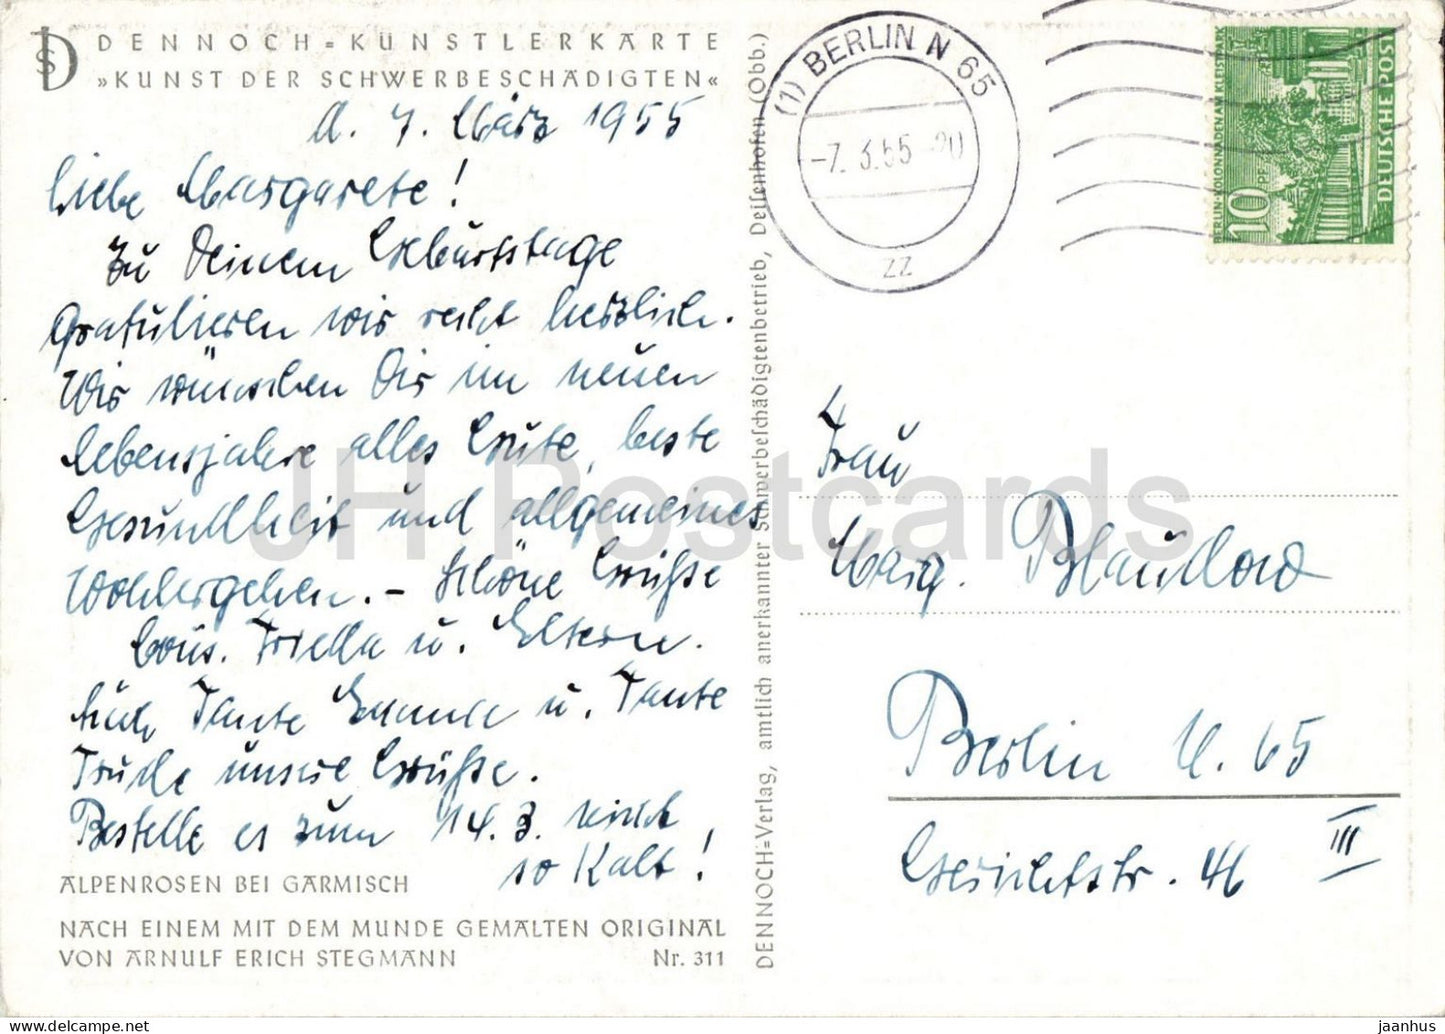 DENNOCH=KÜNSTLERKARTE
»KUNST DER SCHWERBESCHÄDIGTEN«
d. 7. März 1955
Liebe Margarete!
Zu Deinem Geburtstage
gratulieren wir recht herzlich.
Wir wünschen Dir im neuen
Lebensjahre alles Gute, beste
Gesundheit und allgemeines
Wohlergehen. – Schöne Grüße
Frieda u. Eltern.
Tante u. Tante
Trude unsere Grüße.
Bestelle es zum 14.3. nicht
so kalt!
ALPENROSEN BEI GARMISCH
NACH EINEM MIT DEM MUNDE GEMALTEN ORIGINAL
VON ARNULF ERICH STEGMANN Nr. 311
DENNOCH=Verlag, amtlich anerkannter Schwerbeschädigtenbetrieb, Deisenhofen (Obb.)
(1) BERLIN N 65
-7. 3.55-20
ZZ
BERLIN-KOLONNADEN AM KLEISTPARK
10 PF
DEUTSCHE POST
Frau
Marg. Blaudow
Berlin N. 65
Gerichtstr. 46 III
JH Postcards
www.delcampe.net
jaanhus